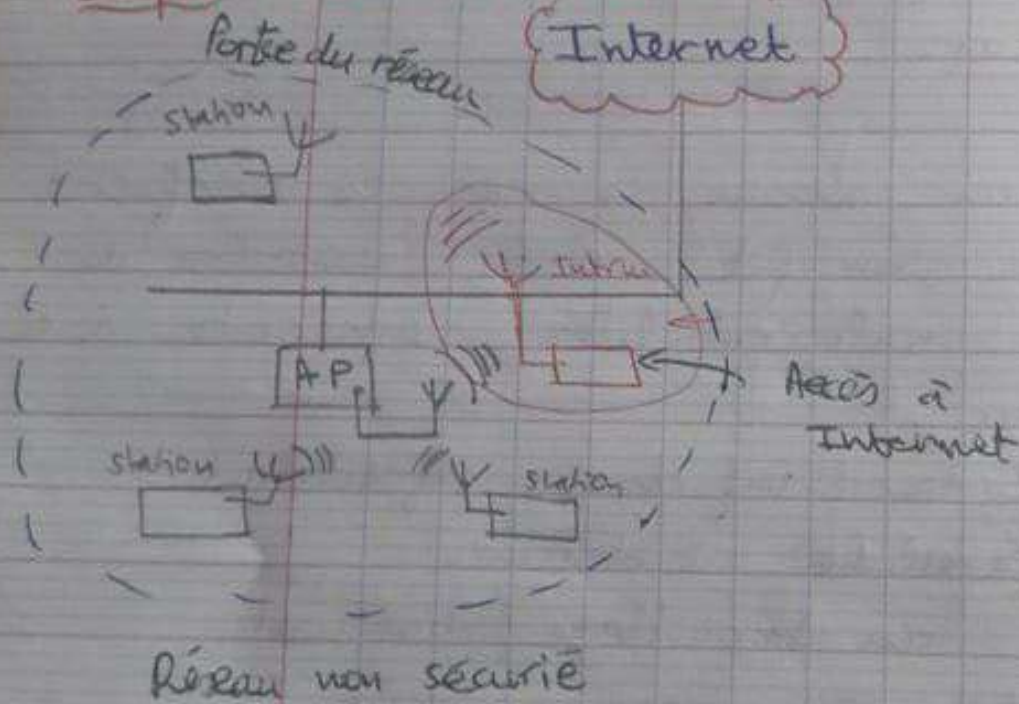 Portée du réseau
Internet
station
Intrus
AP
Accès à
Internet
station
station
Réseau non sécurié